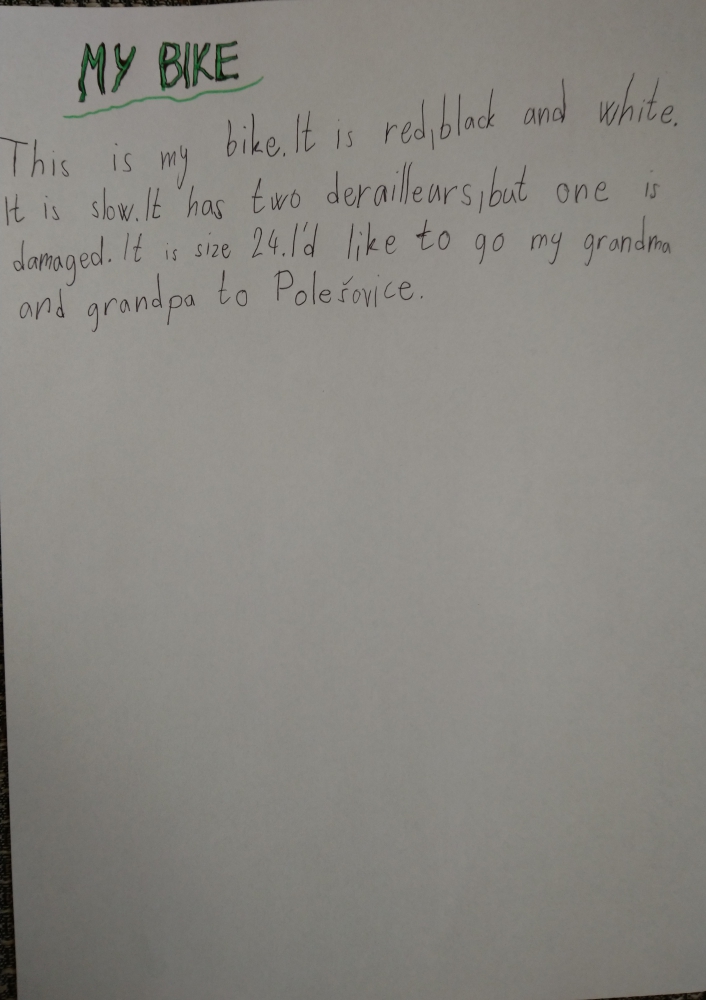 MY BIKE
This is my bike. It is red, black and white.
It is slow. It has two derailleurs, but one is
damaged. It is size 24. I'd like to go my grandma
and grandpa to Polešovice.